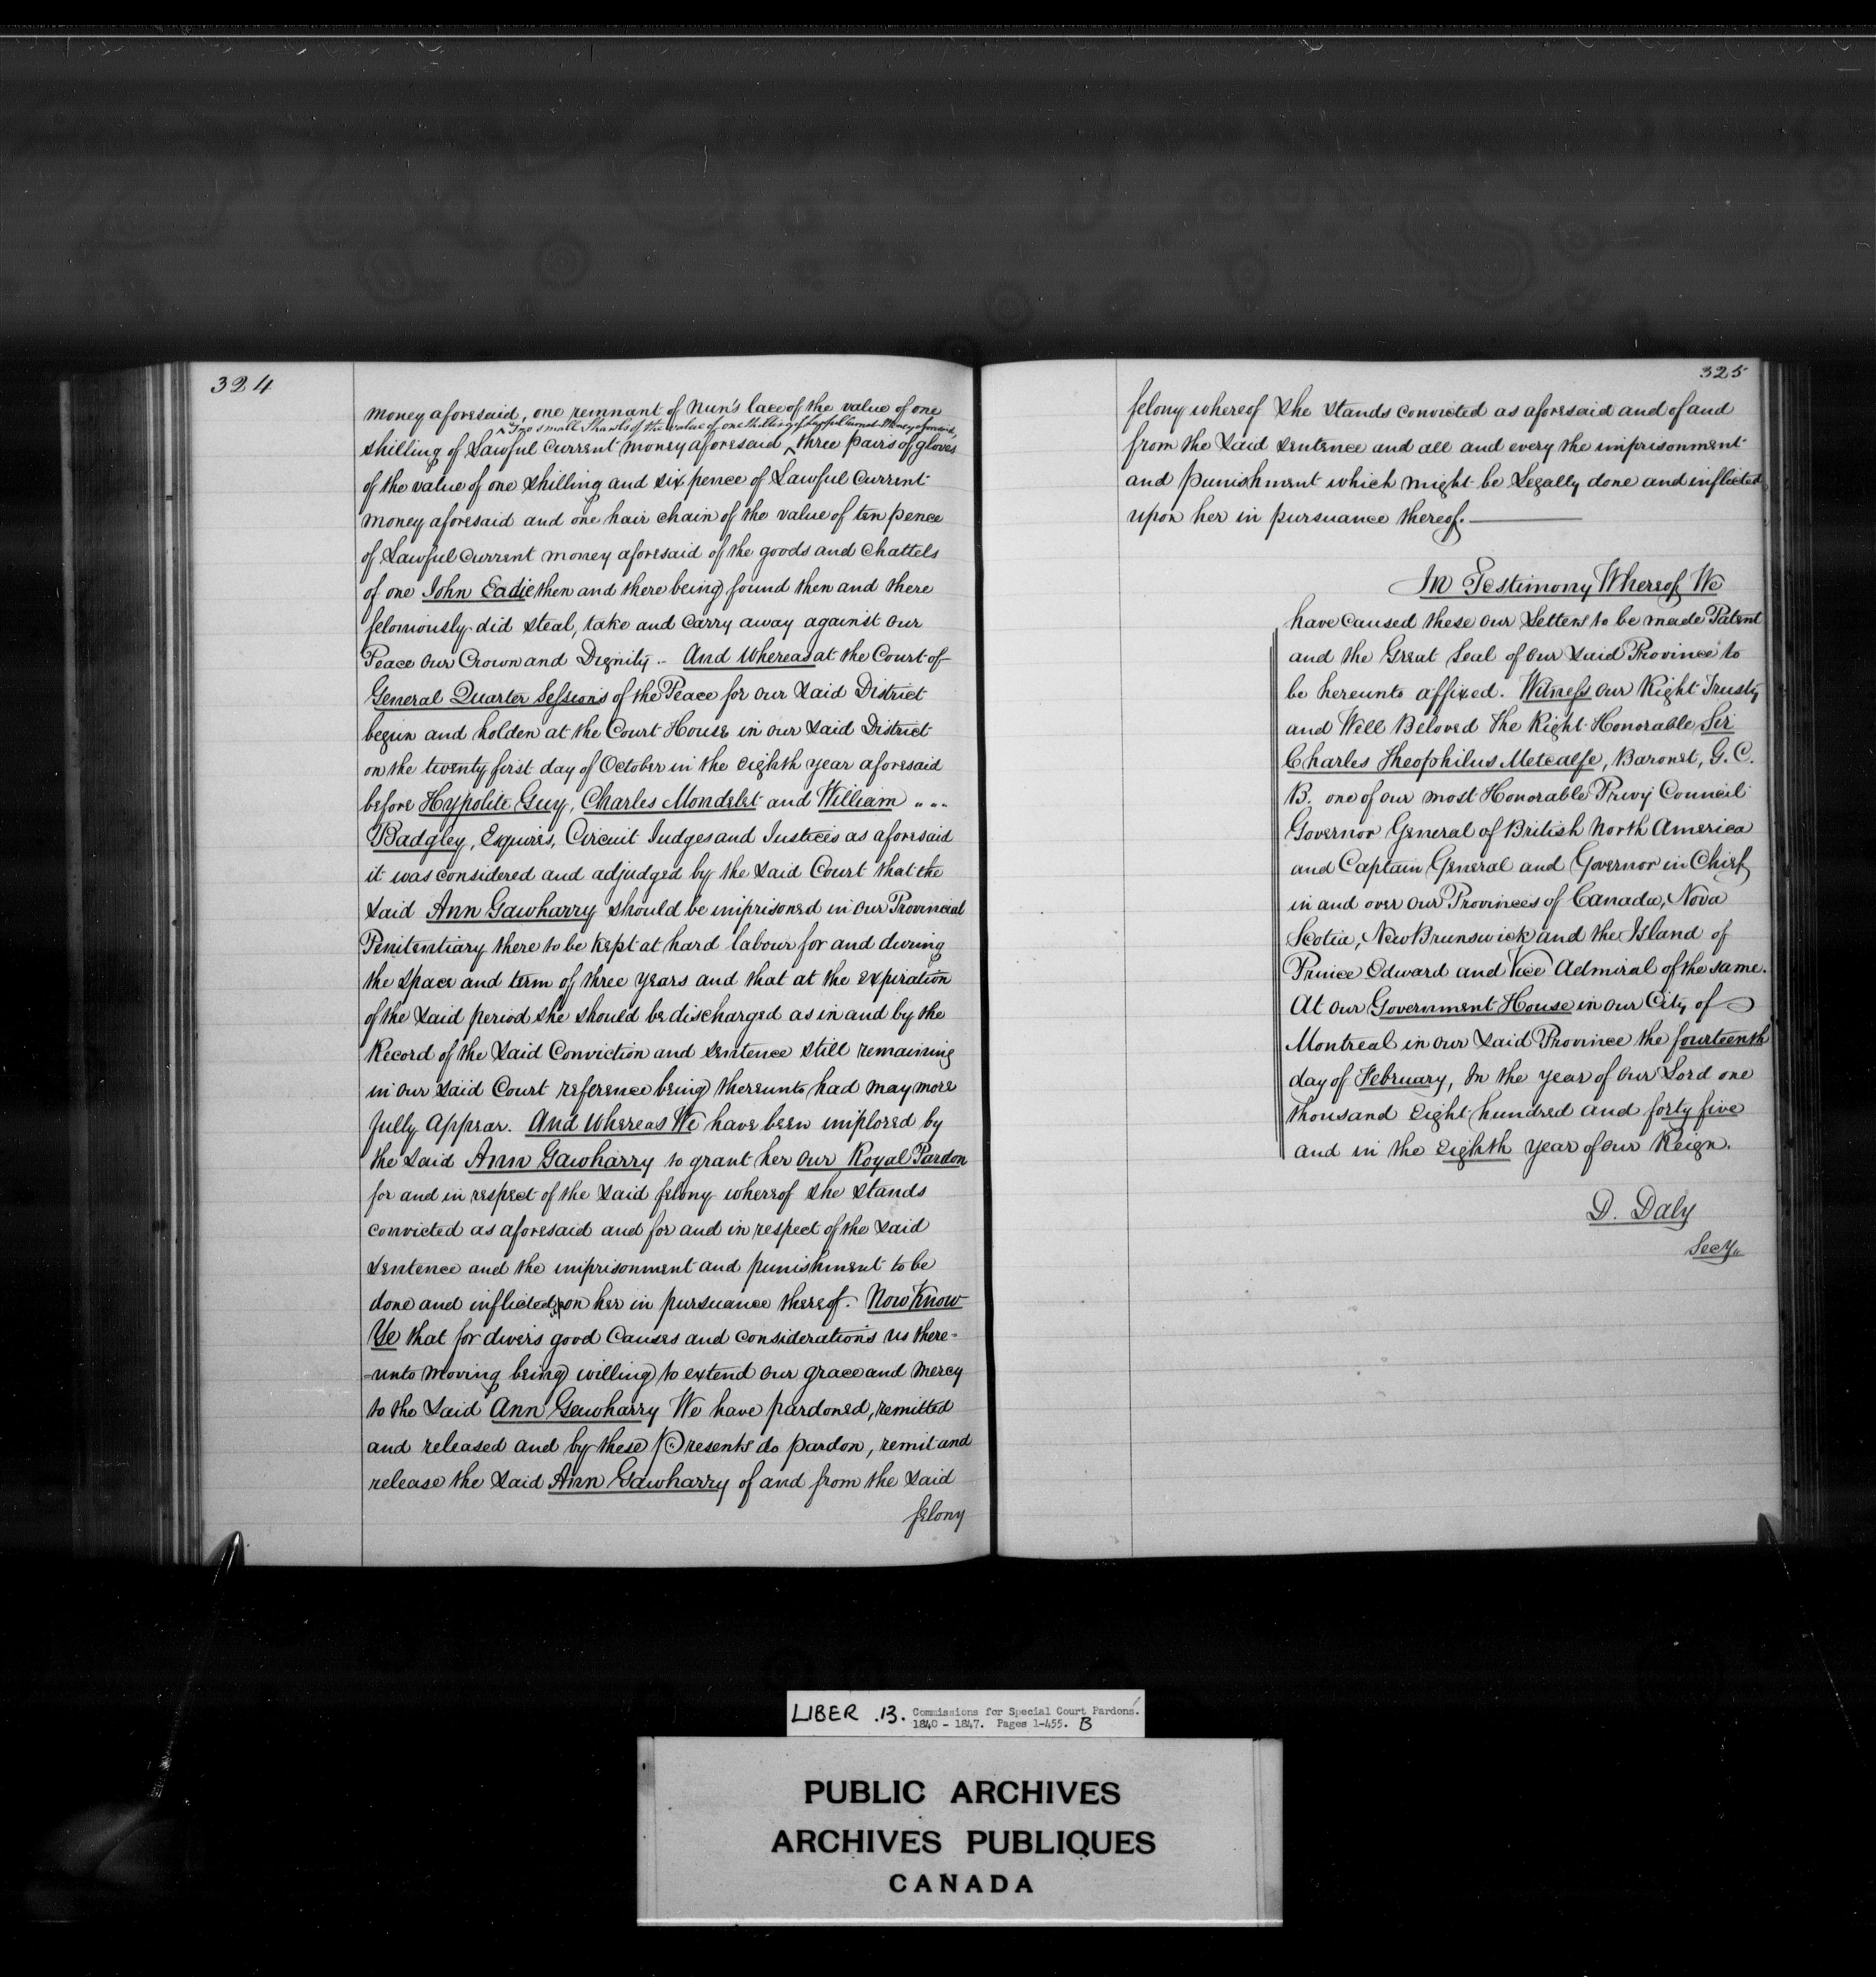 324
money aforesaid, one remnant of Nun's lace of the value of one
Two small Shawls of the value of one shilling of Lawful Current Money aforesaid,
shilling of Lawful Current Money aforesaid ^ three pairs of gloves
of the value of one shilling and six pence of Lawful Current
money aforesaid and one hair chain of the value of ten pence
of Lawful Current money aforesaid of the goods and Chattels
of one John Eadie then and there being found then and there
feloniously did steal, take and carry away against our
Peace our Crown and Dignity .. And Whereas at the Court of
General Quarter Sessions of the Peace for our said District
begun and holden at the Court House in our said District
on the twenty first day of October in the eighth year aforesaid
before Hypolite Guy, Charles Mondelet and William " " "
Badgley, Esquires, Circuit Judges and Justices as aforesaid
it was considered and adjudged by the said Court that the
said Ann Gawharry should be imprisoned in our Provincial
Penitentiary there to be kept at hard labour for and during
the space and term of three years and that at the expiration
of the said period she should be discharged as in and by the
Record of the said Conviction and sentence still remaining
in our said Court reference being thereunto had may more
fully appear. And Whereas We have been implored by
the said Ann Gawharry to grant her our Royal Pardon
for and in respect of the said felony whereof she stands
convicted as aforesaid and for and in respect of the said
sentence and the imprisonment and punishment to be
done and inflicted upon her in pursuance thereof. Now Know
Ye that for divers good Causes and considerations us there=
=unto moving being willing to extend our grace and mercy
to the said Ann Gawharry We have pardoned, remitted
and released and by these Presents do pardon, remit and
release the said Ann Gawharry of and from the said
felony
325
felony whereof she stands convicted as aforesaid and of and
from the said sentence and all and every the imprisonment
and punishment which might be Legally done and inflicted
upon her in pursuance thereof.
In Testimony Whereof We
have caused these our Letters to be made Patent
and the Great Seal of our said Province to
be hereunto affixed. Witness our Right Trusty
and Well Beloved the Right Honorable Sir
Charles Theophilus Metcalfe, Baronet, G.C.
B. one of our most Honorable Privy Council
Governor General of British North America
and Captain General and Governor in Chief
in and over our Provinces of Canada, Nova
Scotia, New Brunswick and the Island of
Prince Edward and Vice Admiral of the same.
At our Government House in our City of
Montreal in our said Province the fourteenth
day of February, In the year of our Lord one
thousand eight hundred and forty five
and in the eighth year of our Reign.
D. Daly
Secy.
LIBER .13. Commissions for Special Court Pardons.
1840 - 1847. Pages 1-455. B
PUBLIC ARCHIVES
ARCHIVES PUBLIQUES
CANADA